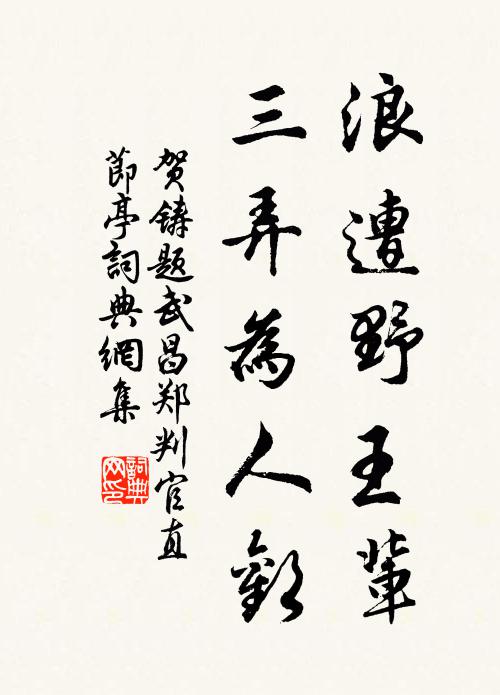 浪遭野王輩
三弄為人歡
贺鑄题武昌郑判官直
節亭詞典網集
詞典网印